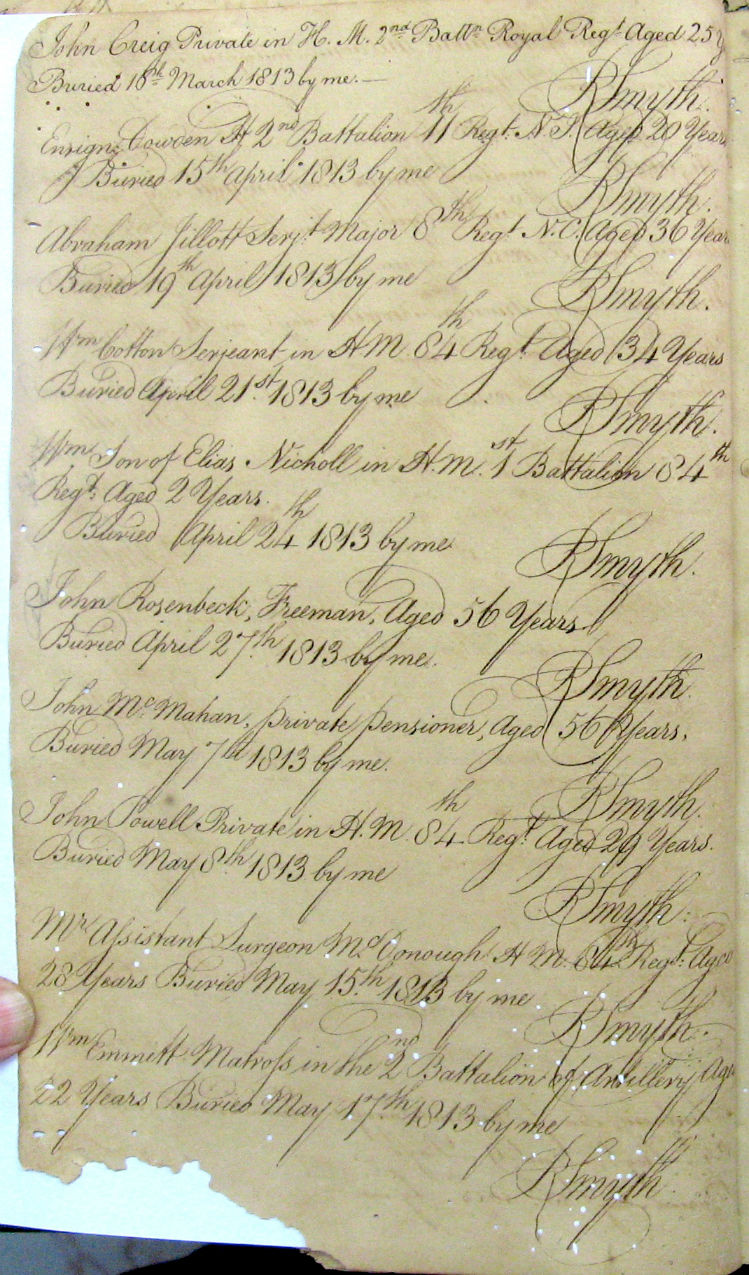 John Creig Private in H. M. 2nd Battn Royal Regt Aged 25 Y
Buried 16th March 1813 by me.—
RSmyth.
Ensign Dowden H 2nd Battalion 11th Regt. N. I. Aged 20 Years
Buried 15th April 1813 by me
RSmyth.
Abraham Jillott Serjt Major 8th Regt N.C. Aged 36 Year
Buried 19th April 1813 by me
RSmyth.
Wm Cotton Serjeant in H M 84th Regt Aged 34 Years
Buried April 21st 1813 by me
RSmyth.
Wm Son of Elias Nicholl in H.M. 1st Battalion 84th
Regt. Aged 2 Years.
Buried April 24th 1813 by me
RSmyth.
John Rosenbeck, Freeman, Aged 56 Years
Buried April 27th 1813 by me.
RSmyth.
John McMahan, private pensioner, Aged 56 Years.
Buried May 7th 1813 by me.
RSmyth.
John Powell Private in H. M 84th Regt Aged 29 Years.
Buried May 8th 1813 by me
RSmyth.
Mr Assistant Surgeon McDonough H M. 84th Regt. Aged
28 Years Buried May 15th 1813 by me
RSmyth.
Wm Emmett Matross in the 2nd Battalion of Artillery Age
22 Years Buried May 17th 1813 by me
RSmyth.